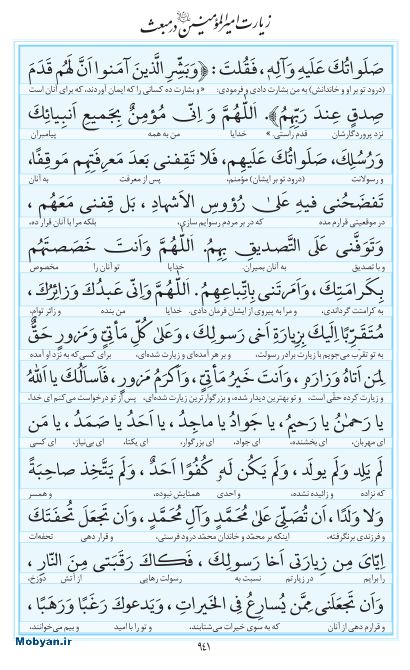 زیارت امیرالمؤمنین در مبعث
صَلَواتُكَ عَلَيهِ وَآلِهِ، فَقُلتَ: ﴿وَبَشِّرِ الَّذينَ آمَنوا اَنَّ لَهُم قَدَمَ
(درود تو بر او و خاندانش) به من بشارت دادی و فرمودی: « و بشارت ده کسانی را که ایمان آوردند، که برای آنان است
صِدقٍ عِندَ رَبِّهِمُ﴾. اَللّٰهُمَّ وَ اِنّى مُؤمِنٌ بِجَميعِ اَنبِيائِكَ
نزد پروردگارشان قدم راستی.» خدایا من به همه پیامبران
وَرُسُلِكَ، صَلَواتُكَ عَلَيهِم، فَلا تَقِفنى بَعدَ مَعرِفَتِهِم مَوقِفًا،
و رسولانت (درود تو بر ایشان) مؤمنم، پس از معرفت به آنان
تَفضَحُنى فيهِ عَلىٰ رُؤوسِ الاَشهادِ، بَل قِفنى مَعَهُم،
در موقعیتی قرارم مده که در بر مردم رسوایم سازی، بلکه مرا با آنان قرار ده،
وَتَوَفَّنى عَلَى التَّصديقِ بِهِمُ. اَللّٰهُمَّ وَاَنتَ خَصَصتَهُم
و با تصدیق به آنان بمیران. خدایا تو آنان را مخصوص
بِكَرامَتِكَ، وَاَمَرتَنى بِاتِّباعِهِمُ. اَللّٰهُمَّ وَاِنّى عَبدُكَ وَزائِرُكَ،
به کرامتت گرداندی، و مرا به پیروی از ایشان فرمان دادی. خدایا من بنده و زائر توام،
مُتَقَرِّبًا اِلَيكَ بِزِيارَةِ اَخى رَسولِكَ، وَعَلىٰ كُلِّ مَأتِيٍّ وَمَزورٍ حَقٌّ
به تو تقرب می‌جویم با زیارت برادر رسولت، و بر هر آمده‌ای و زیارت شده‌ای، برای کسی که به نزد او آمده
لِمَن اَتاهُ وَزارَهُ، وَاَنتَ خَيرُ مَأتِيٍّ، وَاَكرَمُ مَزورٍ، فَاَسأَلُكَ يا اَللّٰهُ
و زیارت کرده حقّی است، و تو بهترین دیدار شده، و بزرگوارترین زیارت شده‌ای، پس از تو درخواست می‌کنم ای خدا،
يا رَحمٰنُ يا رَحيمُ، يا جَوادُ يا ماجِدُ، يا اَحَدُ يا صَمَدُ، يا مَن
ای مهربان، ای بخشنده، ای جواد، ای بزرگوار، ای یکتا، ای بی‌نیاز، ای کسی
لَم يَلِد وَلَم يولَد، وَلَم يَكُن لَهُ كُفُوًا اَحَدٌ، وَلَم يَتَّخِذ صاحِبَةً
که نزاده و زائیده نشده، و احدی همتایش نبوده، و همسر
وَلا وَلَدًا، اَن تُصَلِّىَ عَلىٰ مُحَمَّدٍ وَآلِ مُحَمَّدٍ، وَاَن تَجعَلَ تُحفَتَكَ
و فرزندی برنگرفته، اینکه بر محمّد و خاندان محمّد درود فرستی، و قرار دهی تحفه‌ات
اِيّاىَ مِن زِيارَتى اَخا رَسولِكَ، فَكاكَ رَقَبَتى مِنَ النّارِ،
را برایم در زیارتم نسبت به رسولت رهایی از آتش دوزخ،
وَاَن تَجعَلَنى مِمَّن يُسارِعُ فِى الخَيراتِ، وَيَدعوكَ رَغَبًا وَرَهَبًا،
و قرارم دهی از آنان که به سوی خیرات می‌شتابند، و تو را با امید و بیم می‌خوانند،
۹۴۱
Mobyan.ir